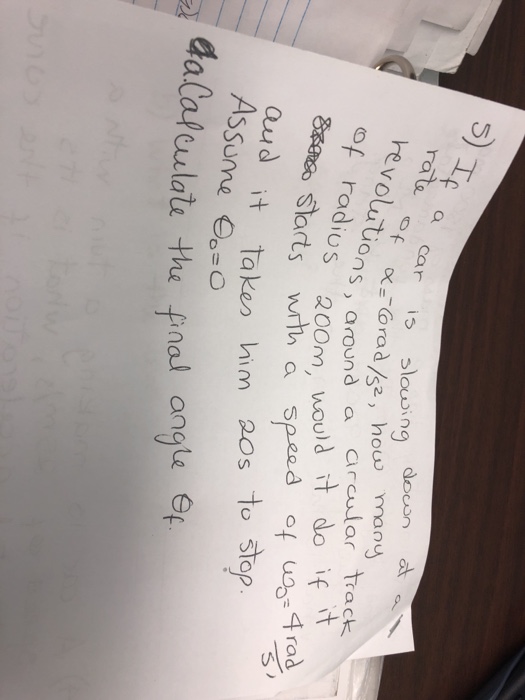 5) If a car is slowing down at a
rate of α=-6rad/s², how many
revolutions, around a circular track
of radius 200m, would it do if it
starts with a speed of ω₀=4rad/s,
and it takes him 20s to stop.
Assume θ₀=0
a. Calculate the final angle θf.